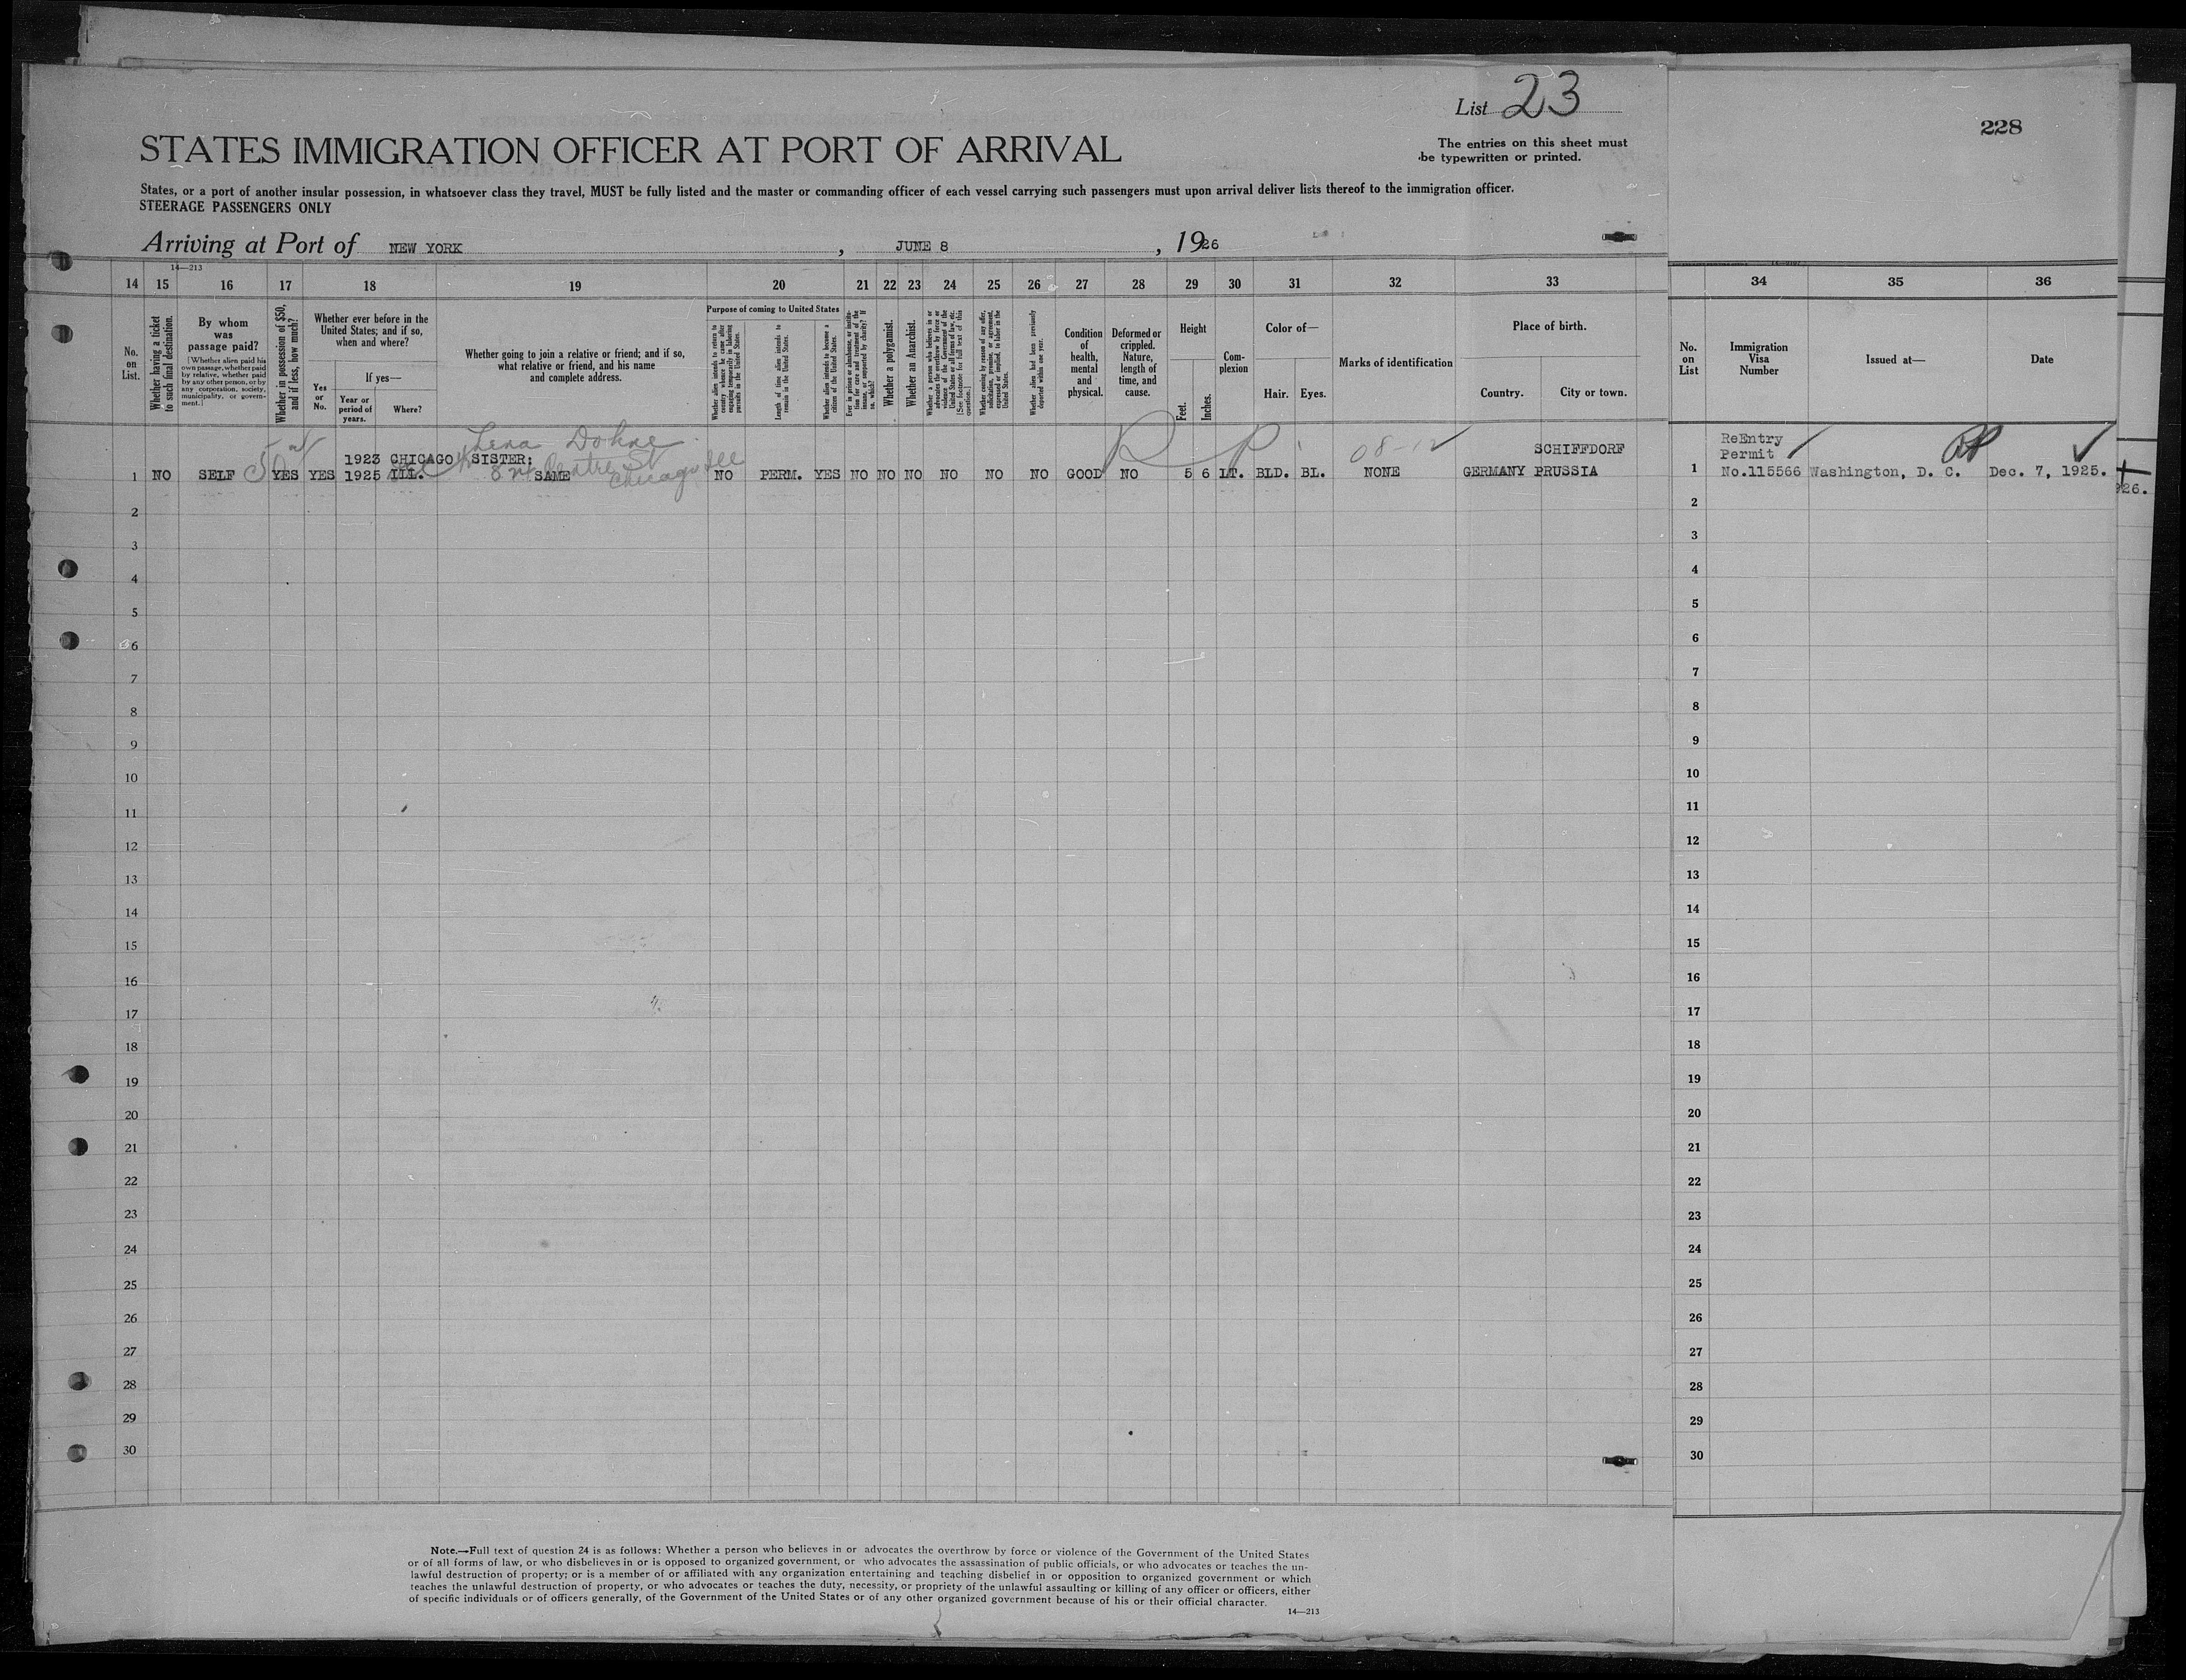 List 23
228
STATES IMMIGRATION OFFICER AT PORT OF ARRIVAL
The entries on this sheet must
be typewritten or printed.
States, or a port of another insular possession, in whatsoever class they travel, MUST be fully listed and the master or commanding officer of each vessel carrying such passengers must upon arrival deliver lists thereof to the immigration officer.
STEERAGE PASSENGERS ONLY
Arriving at Port of NEW YORK, JUNE 8, 1926
14—213
14 15 16 17 18 19 20 21 22 23 24 25 26 27 28 29 30 31 32 33 34 35 36
No. on List.
Whether having a ticket to such final destination.
By whom was passage paid?
[Whether alien paid his own passage, whether paid by relative, whether paid by any other person, or by any corporation, society, municipality, or government.]
Whether in possession of $50, and if less, how much?
Whether ever before in the United States; and if so, when and where?
Yes or No.
If yes—
Year or period of years.
Where?
Whether going to join a relative or friend; and if so, what relative or friend, and his name and complete address.
Purpose of coming to United States
Whether alien intends to return to country whence he came after engaging temporarily in laboring pursuits in the United States.
Length of time alien intends to remain in the United States.
Whether alien intends to become a citizen of the United States.
Ever in prison or almshouse, or institution for care and treatment of the insane, or supported by charity? If so, which?
Whether a polygamist.
Whether an Anarchist.
Whether a person who believes in or advocates the overthrow by force or violence of the Government of the United States or all forms of law, etc. [See footnote for full text of this question.]
Whether coming by reason of any offer, solicitation, promise, or agreement, expressed or implied, to labor in the United States.
Whether alien had been previously deported within one year.
Condition of health, mental and physical.
Deformed or crippled. Nature, length of time, and cause.
Height
Feet.
Inches.
Complexion
Color of—
Hair.
Eyes.
Marks of identification
Place of birth.
Country.
City or town.
No. on List
Immigration Visa Number
Issued at—
Date
Lena Dohne
50
08-12
SCHIFFDORF
ReEntry
Permit
1923 CHICAGO SISTER:
Centre St
Chicago Ill
1 NO SELF YES YES 1925 ILL. SAME NO PERM. YES NO NO NO NO NO NO GOOD NO 5 6 LT. BLD. BL. NONE GERMANY PRUSSIA 1 No.115566 Washington, D. C. Dec. 7, 1925.
26.
2 2
3 3
4 4
5 5
6 6
7 7
8 8
9 9
10 10
11 11
12 12
13 13
14 14
15 15
16 16
17 17
18 18
19 19
20 20
21 21
22 22
23 23
24 24
25 25
26 26
27 27
28 28
29 29
30 30
Note.—Full text of question 24 is as follows: Whether a person who believes in or advocates the overthrow by force or violence of the Government of the United States
or of all forms of law, or who disbelieves in or is opposed to organized government, or who advocates the assassination of public officials, or who advocates or teaches the un-
lawful destruction of property; or is a member of or affiliated with any organization entertaining and teaching disbelief in or opposition to organized government or which
teaches the unlawful destruction of property, or who advocates or teaches the duty, necessity, or propriety of the unlawful assaulting or killing of any officer or officers, either
of specific individuals or of officers generally, of the Government of the United States or of any other organized government because of his or their official character.
14—213